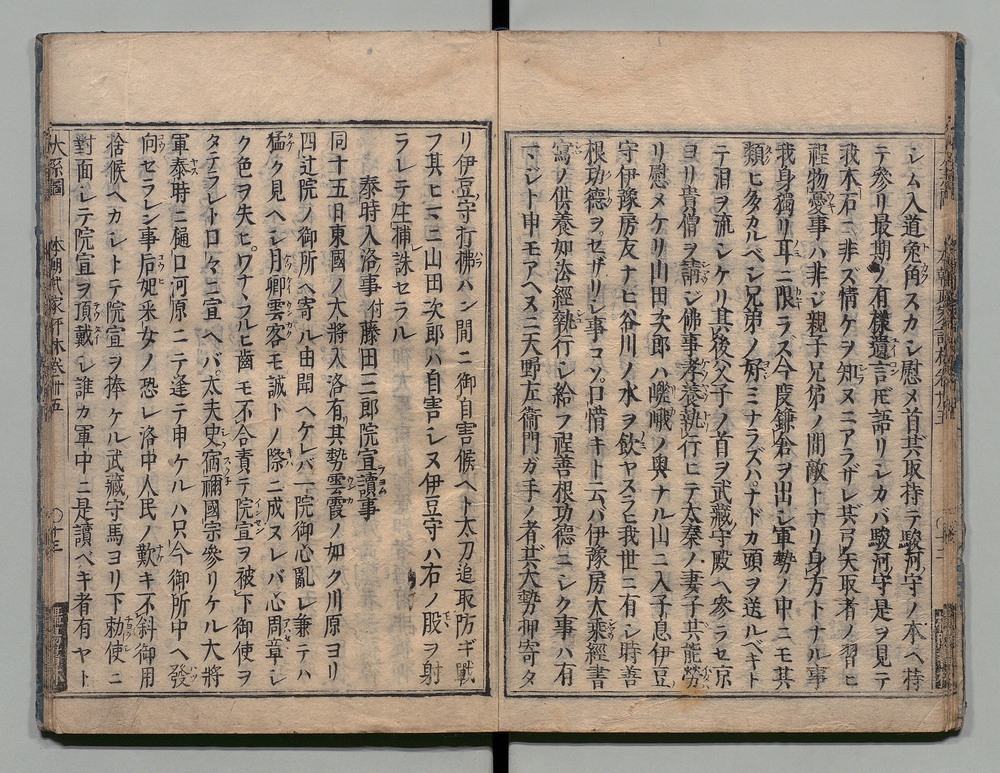 シム入道兎角スカシ慰メ首共取持テ駿河守ノ本ヘ持
テ參リ最期ノ有樣遺言モ語リシカバ駿河守是ヲ見テ
我木石ニ非ズ情ケヲ知ヌニアラザレ共弓矢取者ノ習ヒ
程物憂事ハ非ジ親子兄弟ノ間敵トナリ身方トナル事
我身獨リ耳ニ限ラス今度鎌倉ヲ出シ軍勢ノ中ニモ其
類ヒ多カルベシ兄弟ノ好ミナラズハナドカ頭ヲ送ルベキト
テ泪ヲ流シケリ其後父子ノ首ヲ武藏守殿ヘ參ラセ京
ヨリ貴僧ヲ請シ佛事孝養執行ヒテ太秦ノ妻子共能勞
リ慰メケリ山田次郎ハ嵯峨ノ奧ナル山ニ入子息伊豆
守伊豫房友ナヒ谷川ノ水ヲ飮ヤスラヒ我世ニ有シ時善
根功德ヲセザリシ事コソ口惜キト云バ伊豫房大乘經書
寫ノ供養如法經執行シ給フ程善根功德ニシク事ハ有
マジト申モアヘヌニ天野左衞門ガ手ノ者共大勢押寄タ
リ伊豆守打拂ハン間ニ御自害候ヘト太刀追取防ギ戰
フ其ヒマニ山田次郎ハ自害シヌ伊豆守ハ右ノ股ヲ射
ラレテ生捕誅セラル
泰時入洛ノ事付藤田三郎院宣讀事
同十五日東國ノ大將入洛有其勢雲霞ノ如ク川原ヨリ
四辻院ノ御所ヘ寄ル由聞ヘケレバ一院御心亂レ兼テハ
猛ク見ヘシ月卿雲客モ誠トノ際ニ成ヌレバ心周章シ
ク色ヲ失ヒワナヽフルヒ齒モ不合責テ院宣ヲ被下御使ヲ
タテラレト口々ニ宣ヘバ太夫史宿禰國宗參リケル大將
軍泰時ニ樋口河原ニテ逢テ申ケルハ只今御所中ヘ發
向セラレン事后妃采女ノ恐レ洛中人民ノ歎キ不斜御用
捨候ヘカシトテ院宣ヲ捧ケル武藏守馬ヨリ下勅使ニ
對面シテ院宣ヲ頂戴シ誰カ軍中ニ是讀ベキ者有ヤト
大系圖　本朝武家評林卷卅五　〇十三